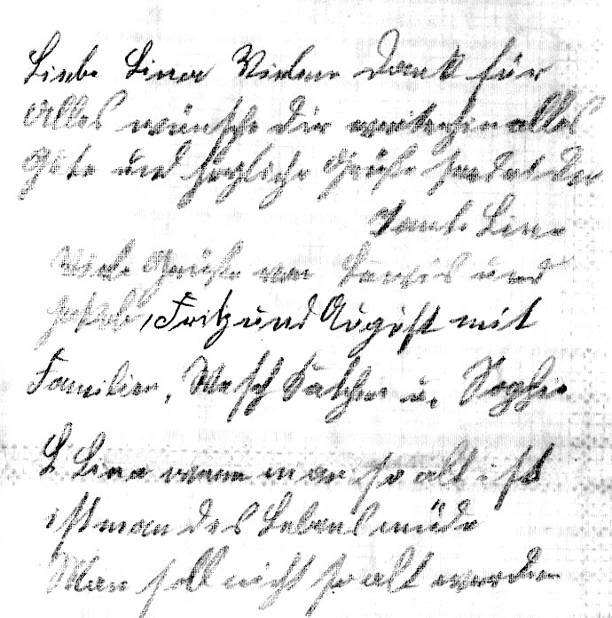 Liebe Lina Vielen Dank für
Alles wünsche Dir weiterhin alles
Gute und herzliche Grüße sendet Dir
Tante Lina
Viele Grüße von und
, Fritz und August mit
Familien, Kätchen u. Sophie
L Lina wenn man so alt ist
ist man des Lebens müde
Man soll nicht so alt werden